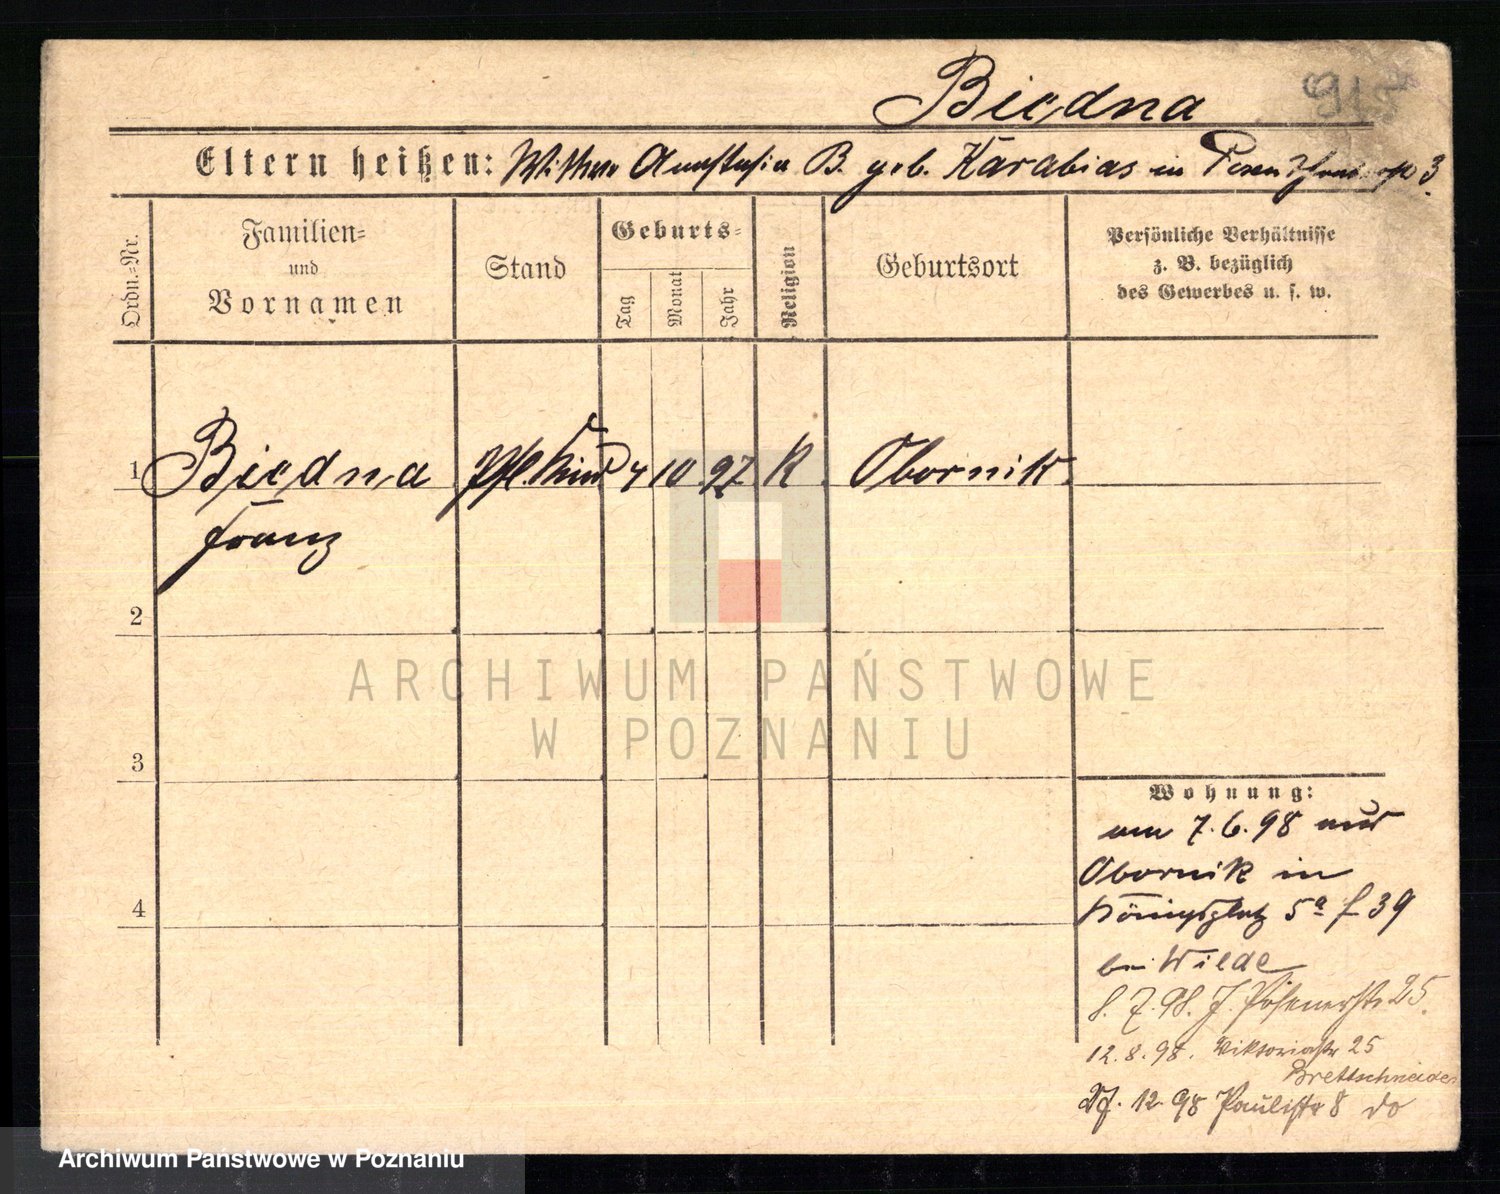 Biedna
Eltern heißen: Witwe Anastasia B. geb. Karabias in Posen 3
Ordn.-Nr.
Familien-
und
Vornamen
Stand
Geburts-
Tag
Monat
Jahr
Religion
Geburtsort
Persönliche Verhältnisse
z. B. bezüglich
des Gewerbes u. s. w.
1 Biedna Pfl. Kind 4 10 97 K Obornik
Franz
2
ARCHIWUM PAŃSTWOWE
W POZNANIU
3
Wohnung:
am 7.6.98 aus
Obornik in
Königsplatz 5a f 39
bei Wilde
8.7.98. J. Posenerstr 25.
12.8.98. Viktoriastr 25
Brettschneider
12 98 Paulistr 8 do
Archiwum Państwowe w Poznaniu